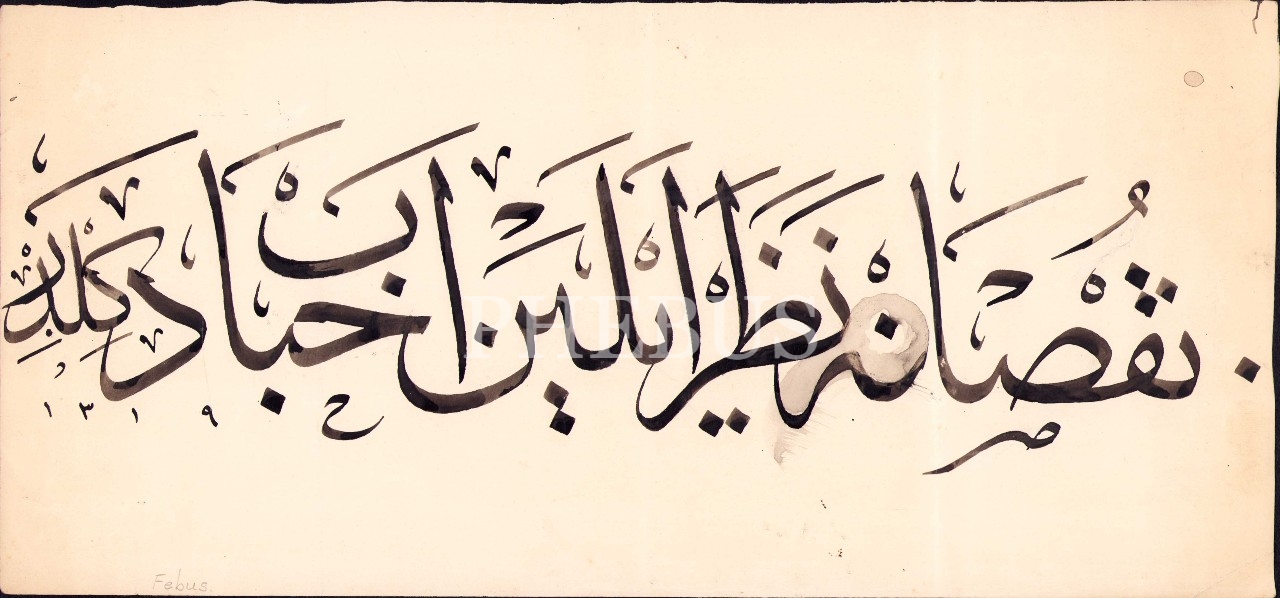 نقصانه نظر ايلين احباب دكلدر
١٣١٩
PHEBUS
Febus.